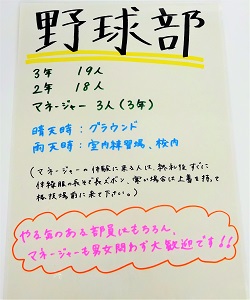 野球部
3年 19人
2年 18人
マネージャー 3人(3年)
晴天時:グラウンド
雨天時:室内練習場、校内
(マネージャーの体験に来る人は、終礼後すぐに
体操服の長そで長ズボン、寒い場合は上着を持って
格技場前に来て下さい。)
やる気のある部員はもちろん、
マネージャーも男女問わず大歓迎です!!